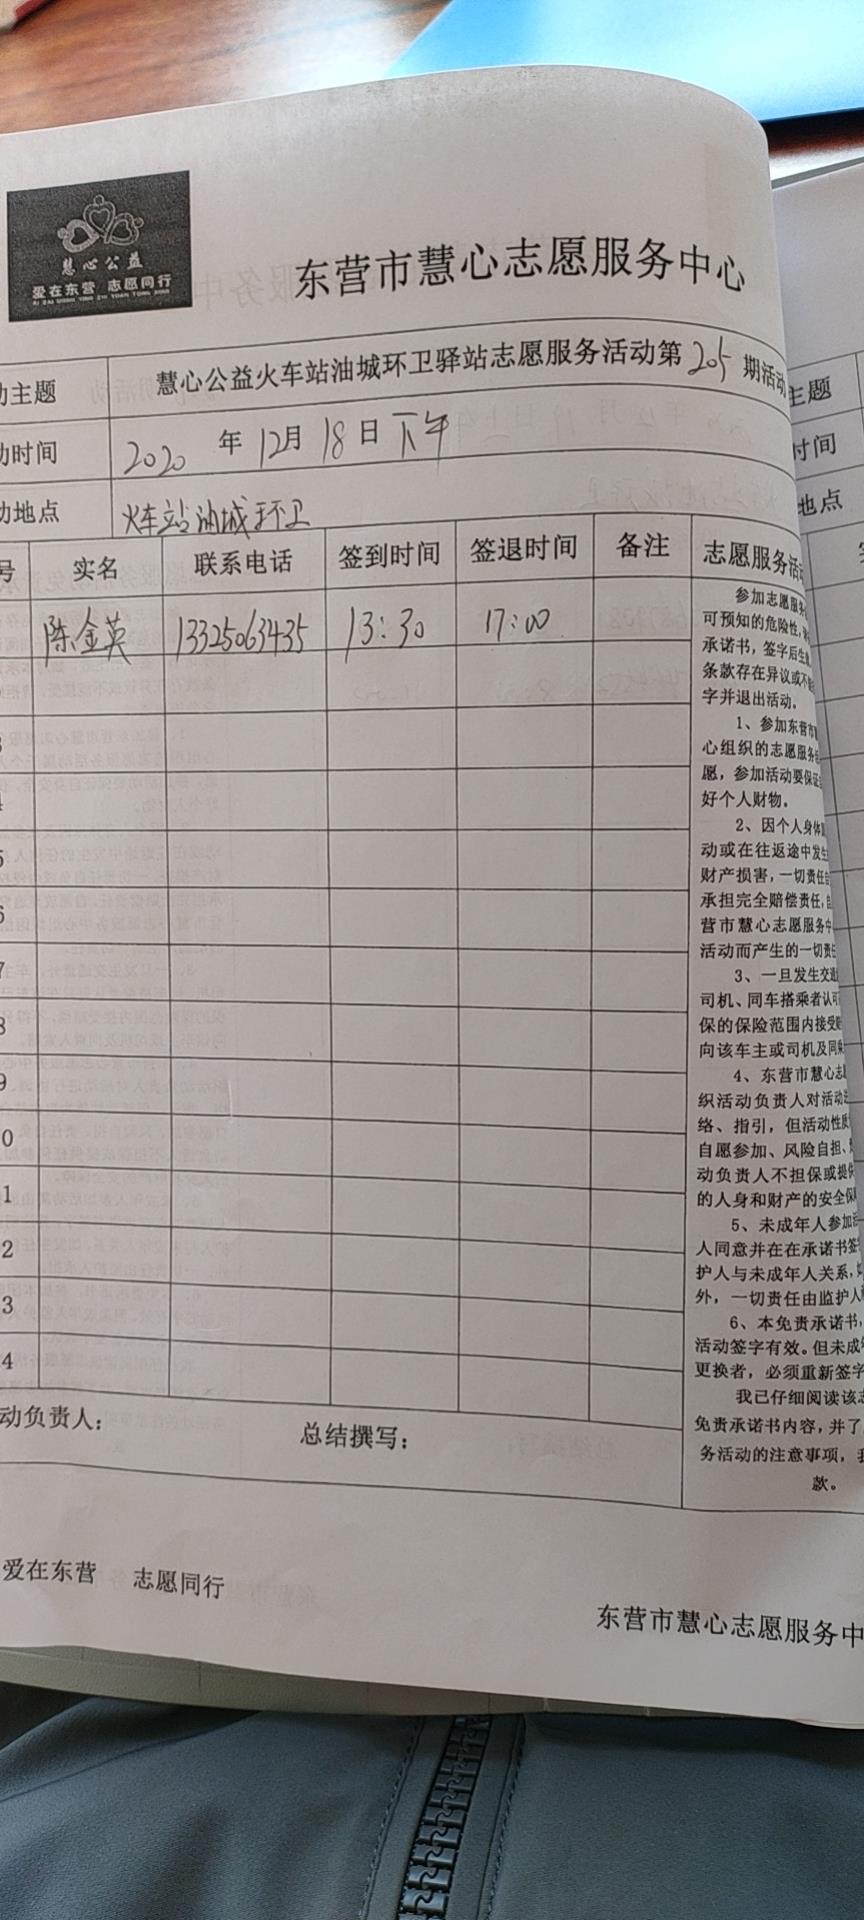 慧心公益
爱在东营 志愿同行
AI ZAI DONG YING ZHI YUAN TONG XING
东营市慧心志愿服务中心
动主题 慧心公益火车站油城环卫驿站志愿服务活动第205期活动
动时间 2020年12月18日下午
动地点 火车站油城环卫
号 实名 联系电话 签到时间 签退时间 备注 志愿服务活动
陈金英 13325063435 13:30 17:00
3
4
5
6
7
8
9
0
1
2
3
4
参加志愿服务
可预知的危险性,
承诺书，签字后生
条款存在异议或不
字并退出活动。
1、参加东营市
心组织的志愿服务
愿，参加活动要保证
好个人财物。
2、因个人身体
动或在往返途中发生
财产损害，一切责任
承担完全赔偿责任,
营市慧心志愿服务中
活动而产生的一切责任
3、一旦发生交通
司机、同车搭乘者认可
保的保险范围内接受
向该车主或司机及同
4、东营市慧心志
织活动负责人对活动
络、指引，但活动性质
自愿参加、风险自担、
动负责人不担保或提供
的人身和财产的安全保
5、未成年人参加
人同意并在在承诺书签
护人与未成年人关系,
外，一切责任由监护人
6、本免责承诺书,
活动签字有效。但未成年
更换者，必须重新签字
我已仔细阅读该志
免责承诺书内容，并了
务活动的注意事项，我
款。
动负责人： 总结撰写：
爱在东营 志愿同行
东营市慧心志愿服务中
主题
时间
地点